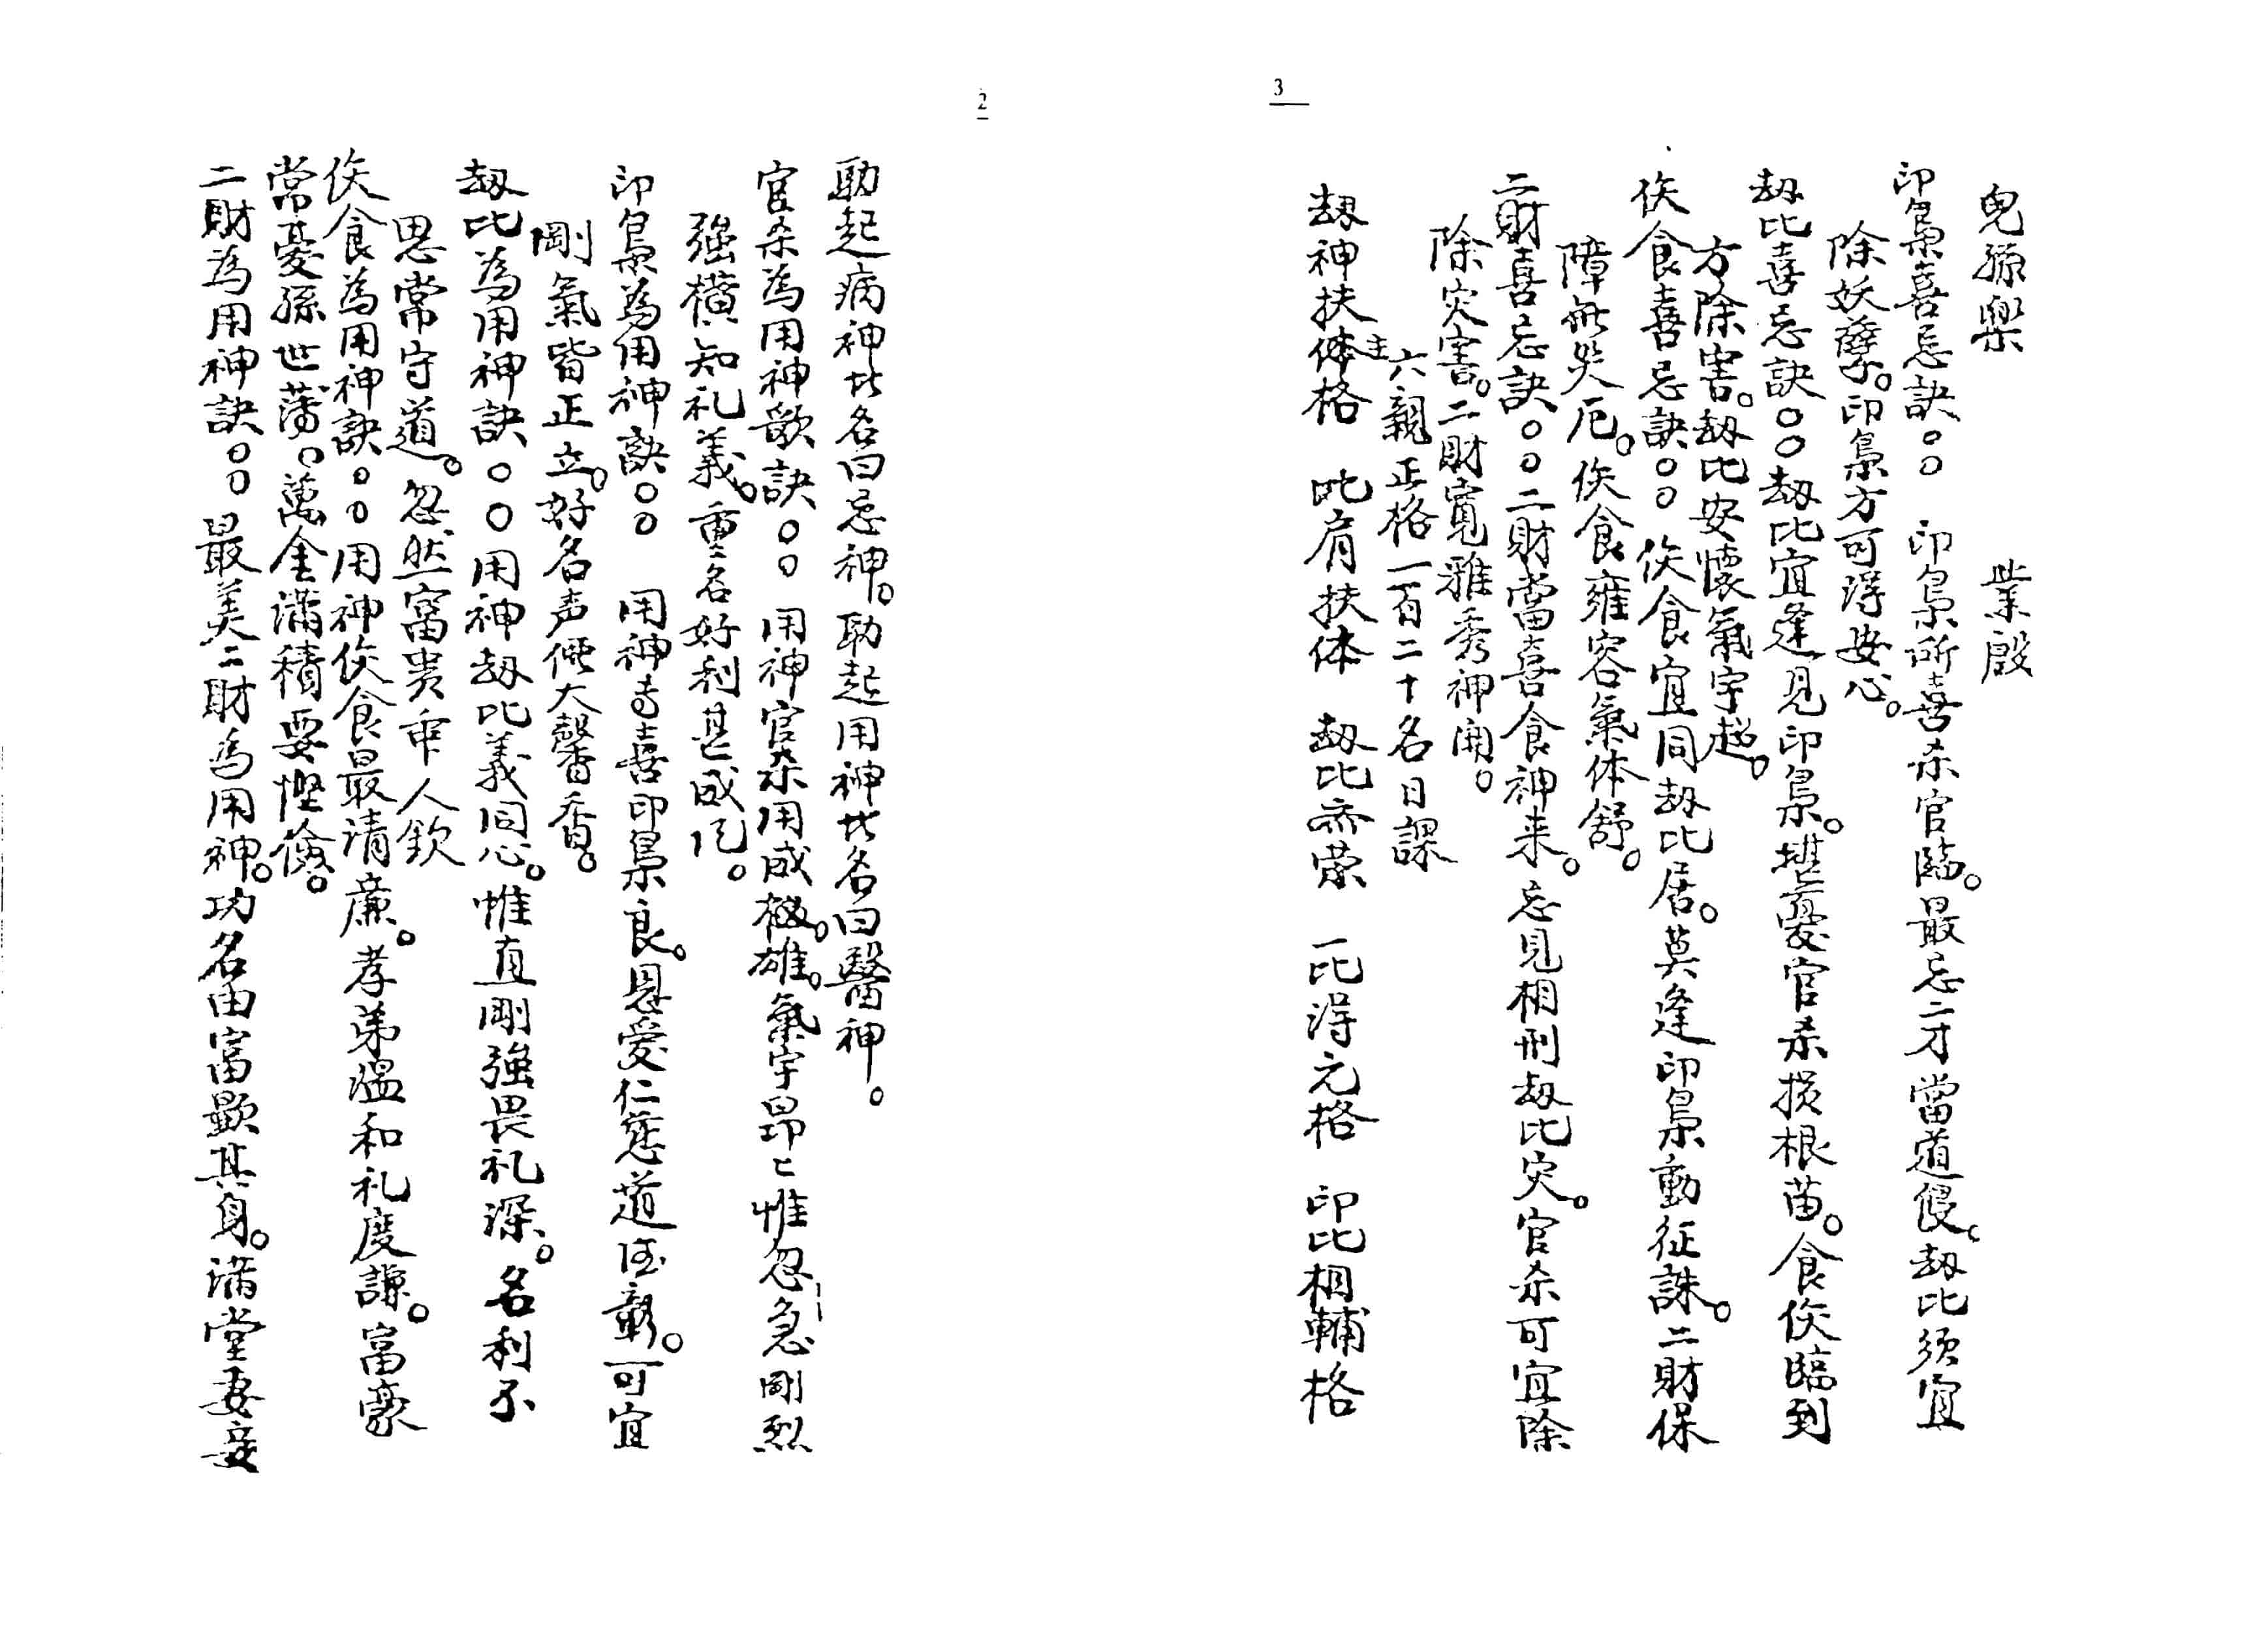 2
助起病神此名曰忌神。助起用神此名曰醫神。
官杀為用神歌訣。。用神官杀用威权。雄。氣宇昂〻惟忍急剛烈
強横知礼義。重名好利甚威风。
印梟為用神訣。。用神喜印梟良。恩愛仁慈道德彰。可宜
剛氣皆正立。好名声価大馨香。
劫比為用神訣。。用神劫比義同心。惟直剛強畏礼深。名利不
思常守道。忽然富贵乖人欽
伤食為用神訣。。用神伤食最清廉。孝弟温和礼度謙。富豪
常憂孫世薄。萬金满積要慳儉。
二財為用神訣。。最美二財為用神。功名由富顯其身。满堂妻妾
3
兒孫樂 業殷
印梟喜忌訣。。印梟所喜杀官臨。最忌二才當道侵。劫比须宜
除妖孽。印梟方可得安心。
劫比喜忌訣。。劫比宜逢見印梟。堪憂官杀损根苗。食伤臨到
方除害。劫比安懐氣宇超。
伤食喜忌訣。。伤食宜同劫比居。莫逢印梟動征誅。二財保
障無災厄。伤食雍容氣体舒。
二財喜忌訣。。二財當喜食神来。忌見相刑劫比灾。官杀可宜除
除灾害。二財寛雅秀神開。
六親正格一百二十名日課
劫神扶体主格 比肩扶体 劫比齐荣 一比得元格 印比相輔格